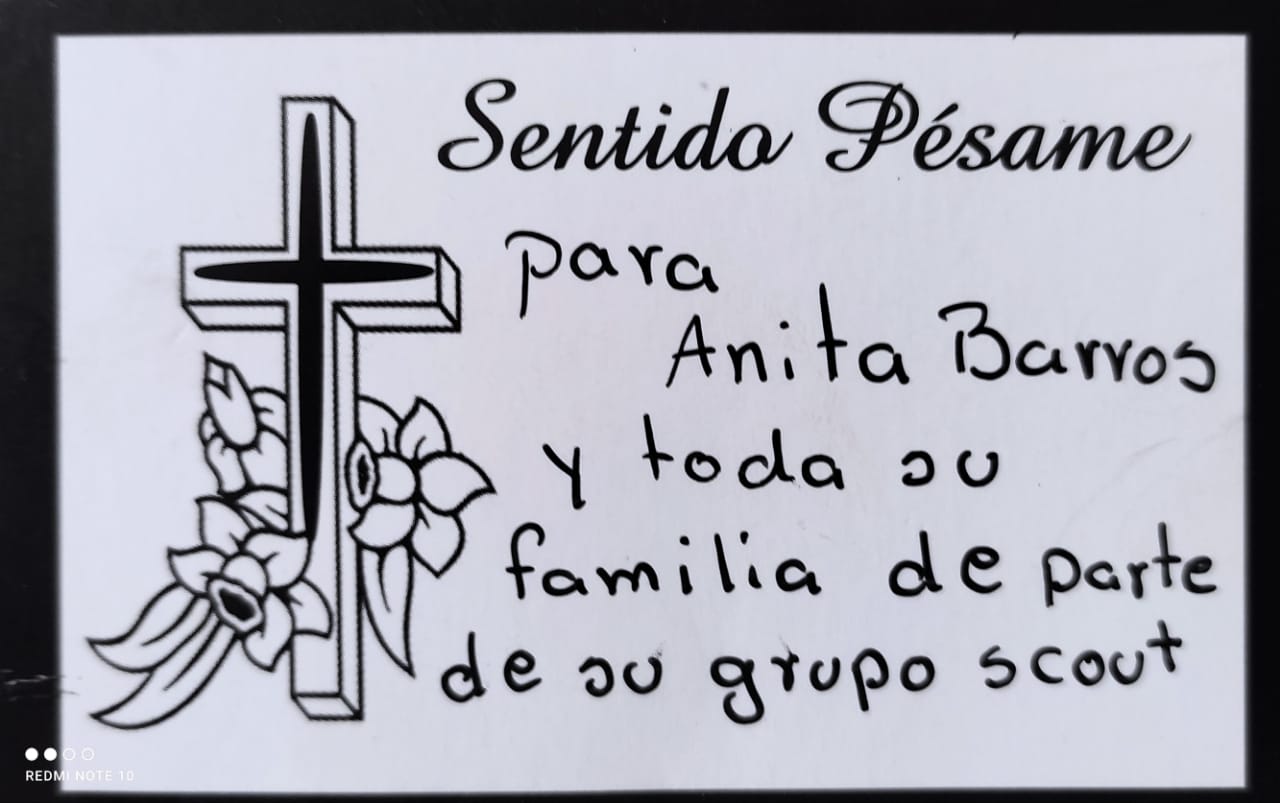 Sentido Pésame
para
Anita Barros
y toda su
familia de parte
de su grupo scout
REDMI NOTE 10